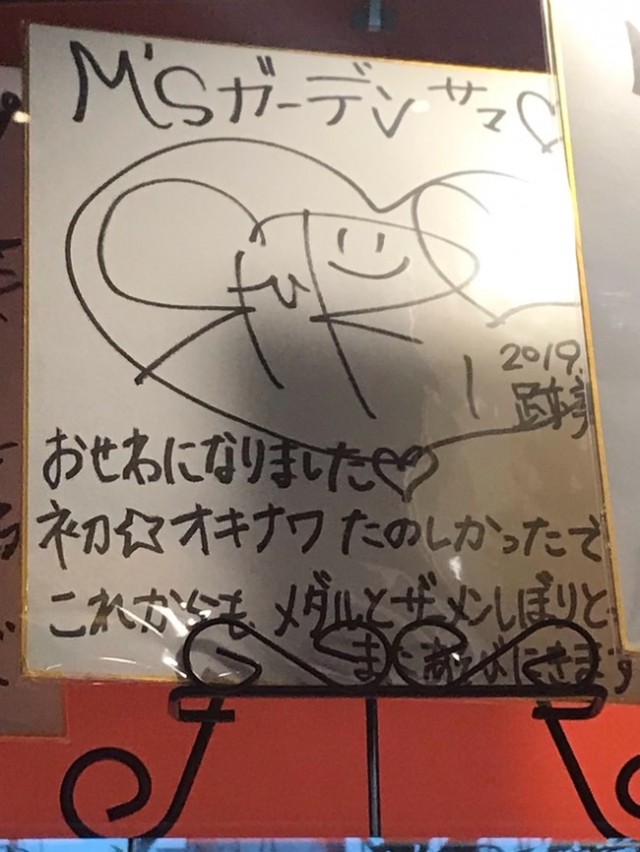 M'Sガーデンサマ♡
2019.
おせわになりました♡
初☆オキナワたのしかったで
これからも メダルとザーメンしぼりと
また遊びにきます